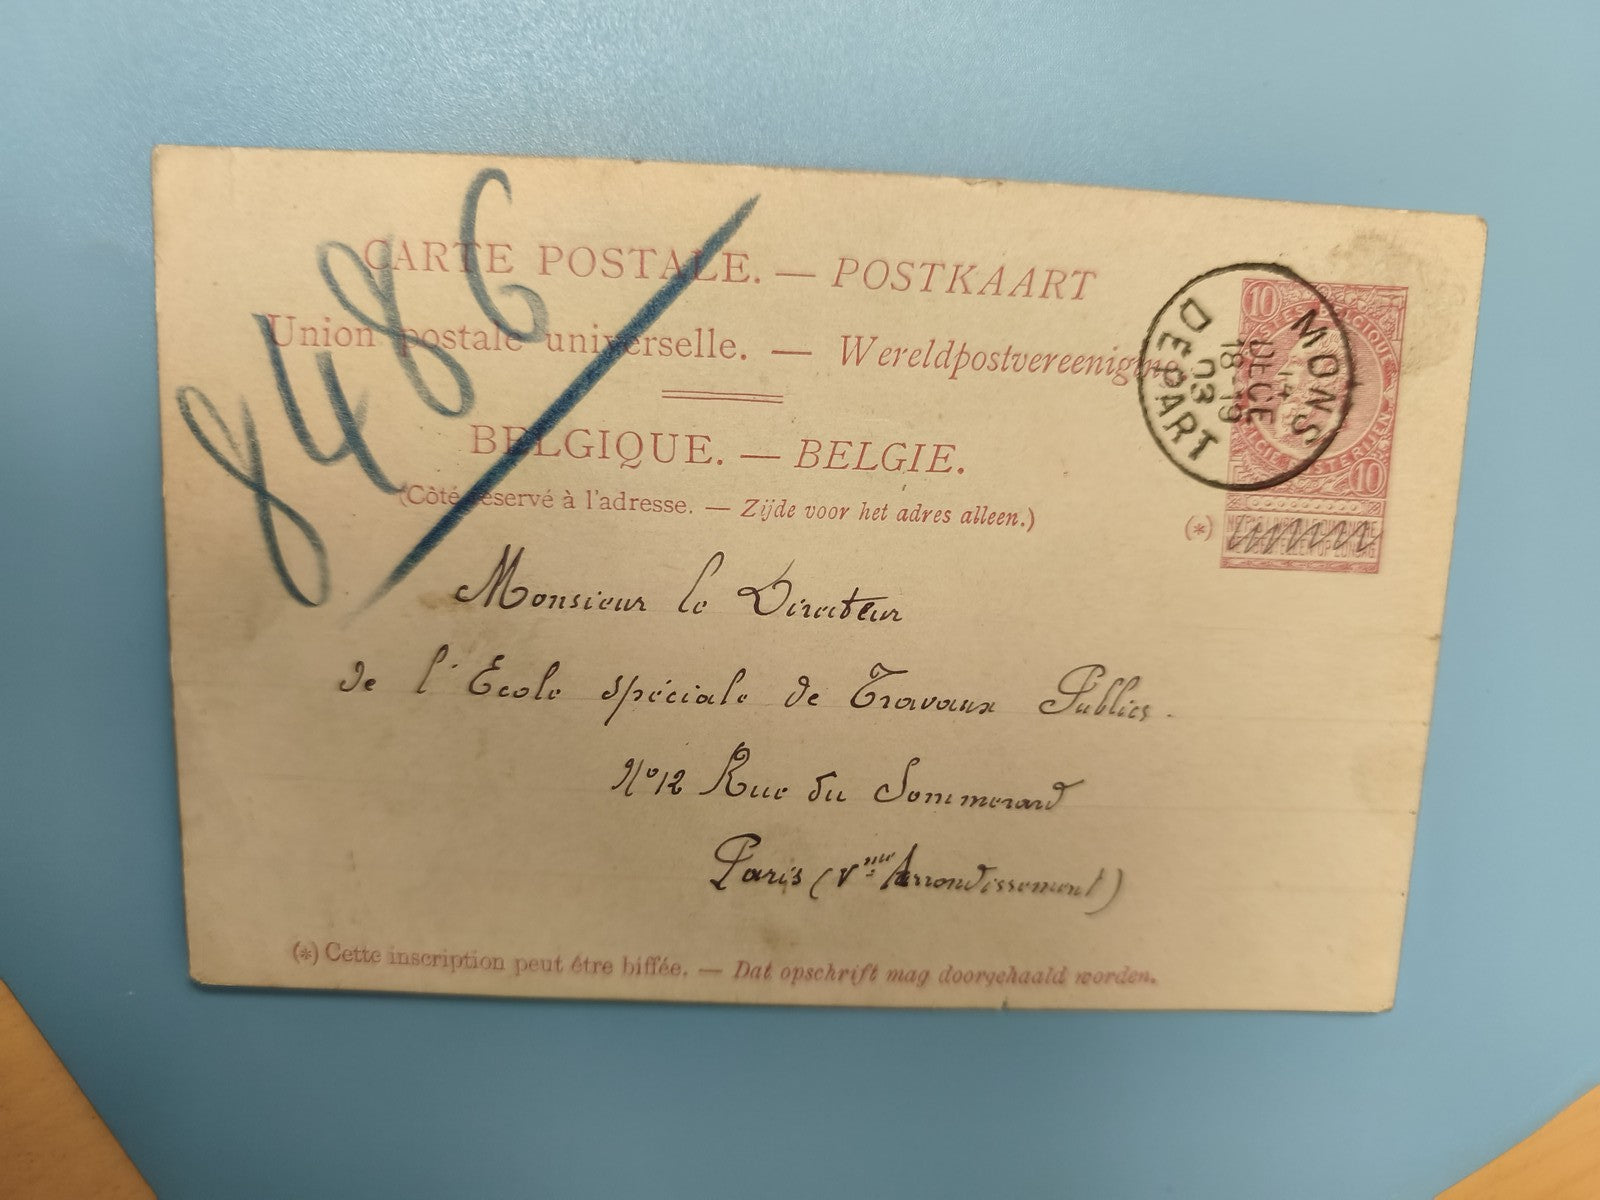 8486
CARTE POSTALE. — POSTKAART
Union postale universelle. — Wereldpostvereeniging
BELGIQUE. — BELGIE.
(Côté réservé à l'adresse. — Zijde voor het adres alleen.)
MONS
14
DECE
18-19
03
DEPART
10
10
(*)
Monsieur le Directeur
de l'Ecole spéciale de Travaux Publics.
N° 12 Rue du Sommerard
Paris (Vme Arrondissement)
(*) Cette inscription peut être biffée. — Dat opschrift mag doorgehaald worden.